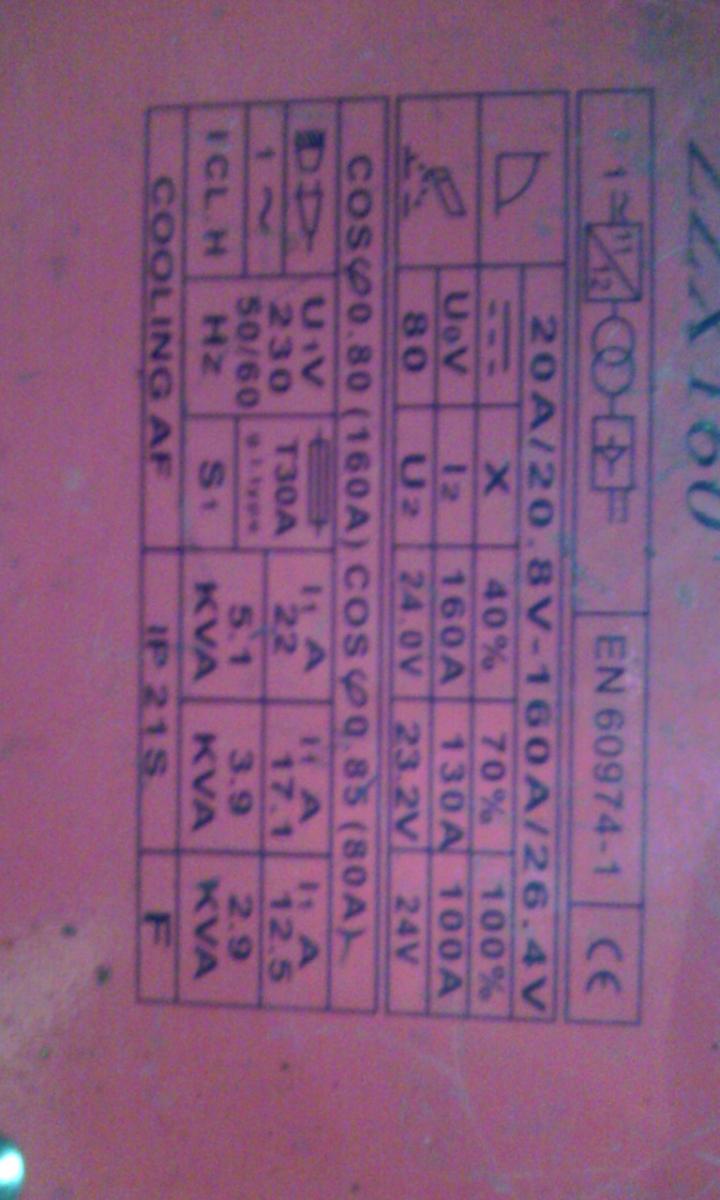 ZZX160
1~ f1 f2 EN 60974-1 CE
20A/20.8V-160A/26.4V
X 40% 70% 100%
U₀V I₂ 160A 130A 100A
80 U₂ 24.0V 23.2V 24V
COSφ0.80 (160A) COSφ0.85 (80A)
U₁V I₁ A I₁ A I₁ A
1~ 230 T30A 22 17.1 12.5
50/60 gl.type 5.1 3.9 2.9
ICL.H Hz S₁ KVA KVA KVA
COOLING AF IP 21S F